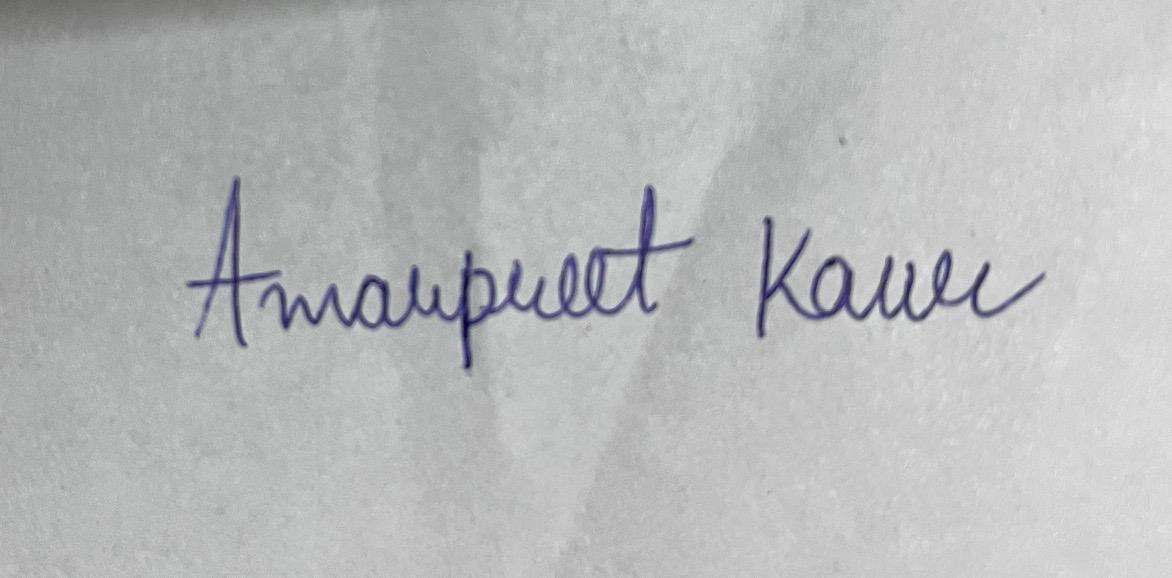 Amarpreet Kaur